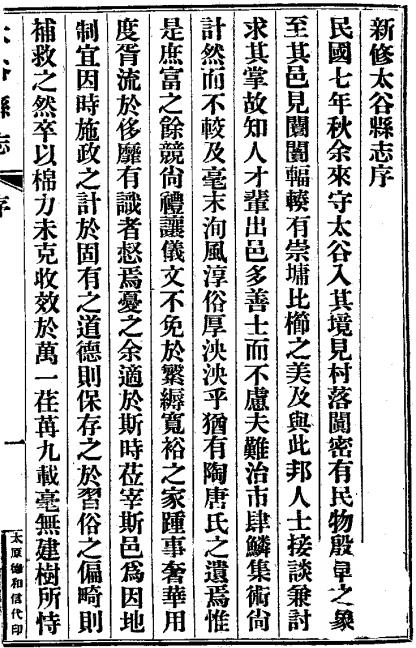 新修太谷縣志序
民國七年秋余來守太谷入其境見村落闐密有民物殷阜之象
至其邑見闤闠輻輳有崇墉比櫛之美及與此邦人士接談兼討
求其掌故知人才輩出邑多善士而不慮夫難治市肆鱗集術尙
計然而不較及毫末洵風淳俗厚泱泱乎猶有陶唐氏之遺焉惟
是庶富之餘競尙禮讓儀文不免於繁縟寬裕之家踵事奢華用
度胥流於侈靡有識者惄焉憂之余適於斯時莅宰斯邑爲因地
制宜因時施政之計於固有之道德則保存之於習俗之偏畸則
補救之然卒以棉力未克收效於萬一荏苒九載毫無建樹所恃
太谷縣志
序
一
太原德和信代印